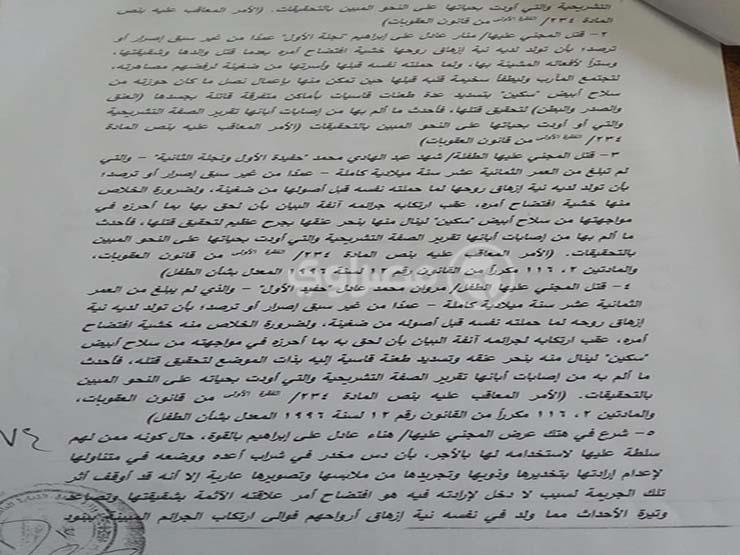 التشريحية والتي أودت بحياتها على النحو المبين بالتحقيقات. (الأمر المعاقب عليه بنص
المادة ٢٣٤/ الفقرة الأولى من قانون العقوبات)
٢- قتل المجني عليها/ منار عادل على إبراهيم "نجلة الأول" عمدًا من غير سبق إصرار أو
ترصد؛ بأن تولد لديه نية إزهاق روحها خشية افتضاح أمره بعدما قتل والدها وشقيقتها،
وستراً لأفعاله المشينة بها، ولما حملته نفسه قبلها وأسرتها من ضغينة لرفضهم مصاهرته،
لتجتمع المآرب وليطفأ سخيمة قلبه قبلها حين تمكن منها بإعمال نصل ما كان حوزته من
سلاح أبيض "سكين" بتسديد عدة طعنات قاسيات بأماكن متفرقة قاتلة بجسدها (العنق
والصدر والبطن) لتحقيق قتلها، فأحدث ما ألم بها من إصابات أبانها تقرير الصفة التشريحية
والتي أو أودت بحياتها على النحو المبين بالتحقيقات (الأمر المعاقب عليه بنص المادة
٢٣٤/ الفقرة الأولى من قانون العقوبات)
٣- قتل المجني عليها الطفلة/ شهد عبد الهادي محمد "حفيدة الأول ونجلة الثانية" – والتي
لم تبلغ من العمر الثمانية عشر سنة ميلادية كاملة – عمدًا من غير سبق إصرار أو ترصد؛
بأن تولد لديه نية إزهاق روحها لما حملته نفسه قبل أصولها من ضغينة، ولضرورة الخلاص
منها خشية افتضاح أمره، عقب ارتكابه جرائمه آنفة البيان بأن لحق بها بما أحرزه في
مواجهتها من سلاح أبيض "سكين" لينال منها بنحر عنقها بجرح عظيم لتحقيق قتلها، فأحدث
ما ألم بها من إصابات أبانها تقرير الصفة التشريحية والتي أودت بحياتها على النحو المبين
بالتحقيقات. (الأمر المعاقب عليه بنص المادة ٢٣٤/ الفقرة الأولى من قانون العقوبات،
والمادتين ٢، ١١٦ مكرراً من القانون رقم ١٢ لسنة ١٩٩٦ المعدل بشأن الطفل)
٤- قتل المجني عليها الطفل/ مروان محمد عادل "حفيد الأول" – والذي لم يبلغ من العمر
الثمانية عشر سنة ميلادية كاملة – عمدًا من غير سبق إصرار أو ترصد؛ بأن تولد لديه نية
إزهاق روحه لما حملته نفسه قبل أصوله من ضغينة، ولضرورة الخلاص منه خشية افتضاح
أمره، عقب ارتكابه لجرائمه آنفة البيان بأن لحق به بما أحرزه في مواجهته من سلاح أبيض
"سكين" لينال منه بنحر عنقه وتسديد طعنة قاسية إليه بذات الموضع لتحقيق قتله، فأحدث
ما ألم به من إصابات أبانها تقرير الصفة التشريحية والتي أودت بحياته على النحو المبين
بالتحقيقات. (الأمر المعاقب عليه بنص المادة ٢٣٤/ الفقرة الأولى من قانون العقوبات،
والمادتين ٢، ١١٦ مكرراً من القانون رقم ١٢ لسنة ١٩٩٦ المعدل بشأن الطفل)
٥- شرع في هتك عرض المجني عليها/ هناء عادل على إبراهيم بالقوة، حال كونه ممن لهم
سلطة عليها لاستخدامه لها بالأجر، بأن دس مخدر في شراب أعده ووضعه في متناولها
لإعدام إرادتها بتخديرها وذويها وتجريدها من ملابسها وتصويرها عارية إلا أنه قد أوقف أثر
تلك الجريمة لسبب لا دخل لإرادته فيه هو افتضاح أمر علاقته الآثمة بشقيقتها وتصاعد
وتيرة الأحداث مما ولد في نفسه نية إزهاق أرواحهم فوالى ارتكاب الجرائم المبينة ببنود
مصراوي